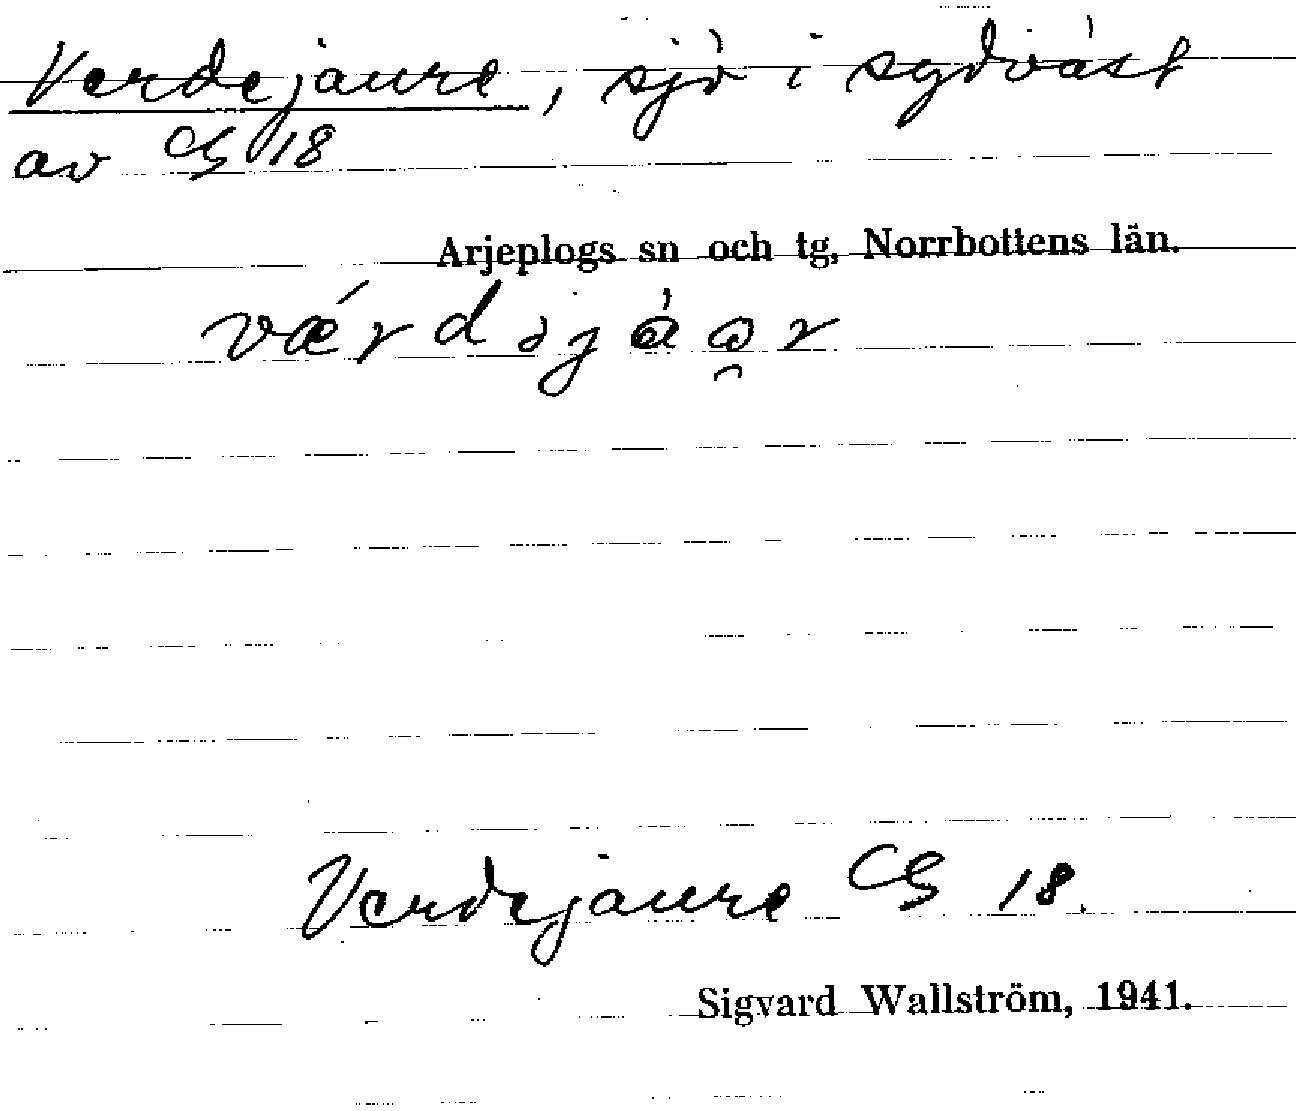 Verdejaure, sjö i sydväst
av CG 18
Arjeplogs sn och tg, Norrbottens län.
vǽrdəjɑ́ɑ̯r
Verdejaure CG 18.
Sigvard Wallström, 1941.